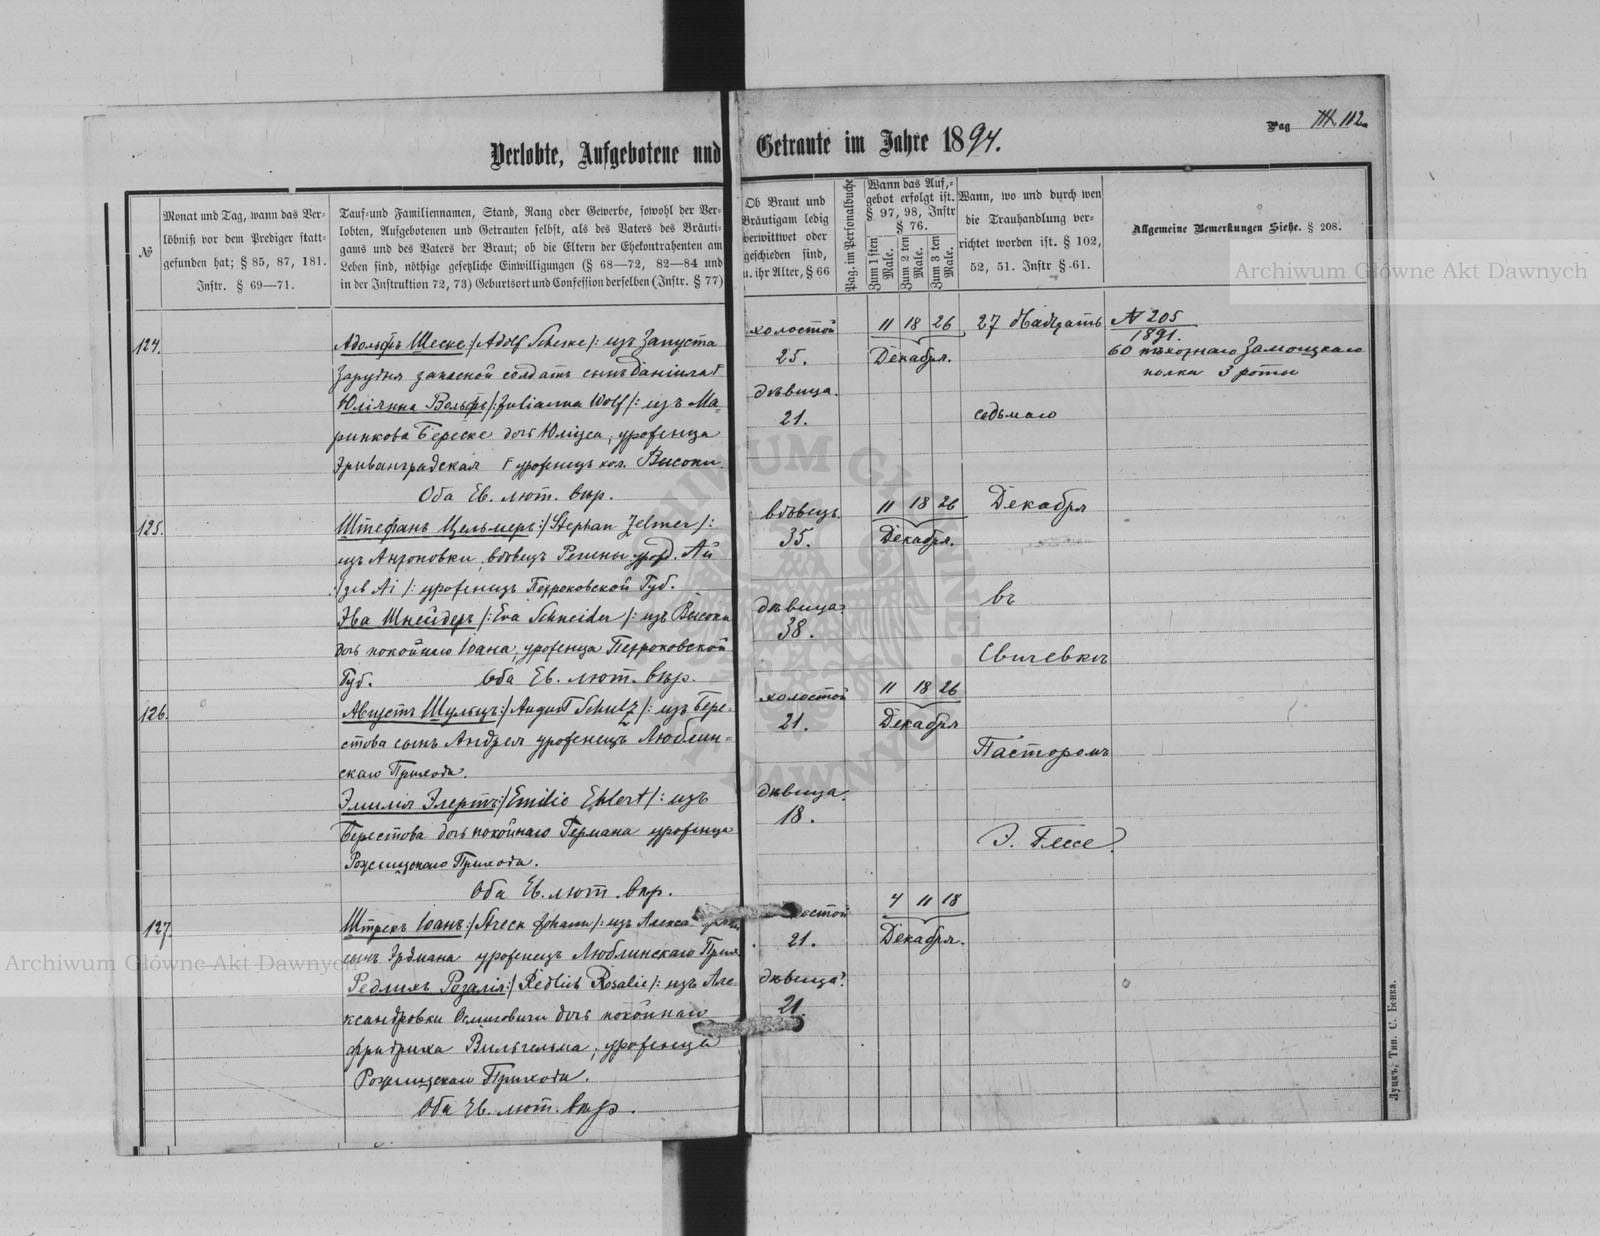 Pag 112
Verlobte, Aufgebotene und Getraute im Jahre 1894.
№
Monat und Tag, wann das Ver-
löbniß vor dem Prediger statt-
gefunden hat; § 85, 87, 181.
Instr. § 69—71.
Tauf- und Familiennamen, Stand, Rang oder Gewerbe, sowohl der Ver-
lobten, Aufgebotenen und Getrauten selbst, als des Vaters des Bräuti-
gams und des Vaters der Braut; ob die Eltern der Ehekontrahenten am
Leben sind, nöthige gesetzliche Einwilligungen (§ 68—72, 82—84 und
in der Instruktion 72, 73) Geburtsort und Confession derselben (Instr. § 77)
Ob Braut und
Bräutigam ledig
verwittwet oder
geschieden sind,
u. ihr Alter, § 66
Pag. im Personalbuche
Wann das Auf-
gebot erfolgt ist.
§ 97, 98, Instr
§ 76.
Zum 1sten Male.
Zum 2ten Male.
Zum 3ten Male.
Wann, wo und durch wen
die Trauhandlung ver-
richtet worden ist. § 102,
52, 51. Instr § 61.
Allgemeine Bemerkungen Siehe. § 208.
124.
Адольфъ Шеске :/ Adolf Scheske /: изъ Запуста
Зарудня запасной солдатъ сынъ Даніила Г
Юліянна Вольфъ /: Julianna Wolf /: изъ Ма-
ринкова Береске дочь Юлiуса, уроженца
урожденецъ кол. Высоки
Оба Ев. лют. вѣр.
холостой
25.
дѣвица.
21.
11 18 26
Декабря.
27 Двадцать
седьмаго
Декабря
въ
Свичевкѣ
Пасторомъ
Э. Гессе.
№ 205
1891.
60 пѣхотнаго Замоцкаго
полка 3 роты
125.
Штефанъ Цельмеръ :/ Stephan Zelmer /:
изъ Антоновки, вдовецъ Регины урожд. Ай
/: Ai /: уроженецъ Петроковской Губ.
Эва Шнейдеръ /: Eva Schneider /: изъ Высоки
дочь покойнаго Іоана, уроженца Петроковской
Губ. Оба Ев. лют. вѣр.
вдовецъ
35.
дѣвица
38.
11 18 26
Декабря.
126.
Августъ Шульцъ :/ August Schulz /: изъ Бере-
стова сынъ Андрея уроженецъ Люблин-
скаго Прихода.
Эмилія Элертъ :/ Emilie Ehlert /: изъ
Берестова дочь покойнаго Германа уроженца
Рожищскаго Прихода.
Оба Ев. лют. вѣр.
холостой
21.
дѣвица.
18.
11 18 26
Декабря
127.
Штрекъ Іоанъ :/ Streck Johann /: изъ Алекса
сынъ Эрдмана уроженецъ Люблинскаго Прих.
Редлихъ Розалія :/ Redlich Rosalie /: изъ Але-
ксандровки Осмиговичи дочь покойнаго
Фридриха Вильгельма, уроженца
Рожищскаго Прихода.
Оба Ев. лют. вѣр.
21.
дѣвица
21.
4 11 18
Декабря.
Луцкъ, Тип. С. Бенка.
Archiwum Główne Akt Dawnych
Archiwum Główne Akt Dawnych
ARCHIWUM GŁÓWNE AKT DAWNYCH